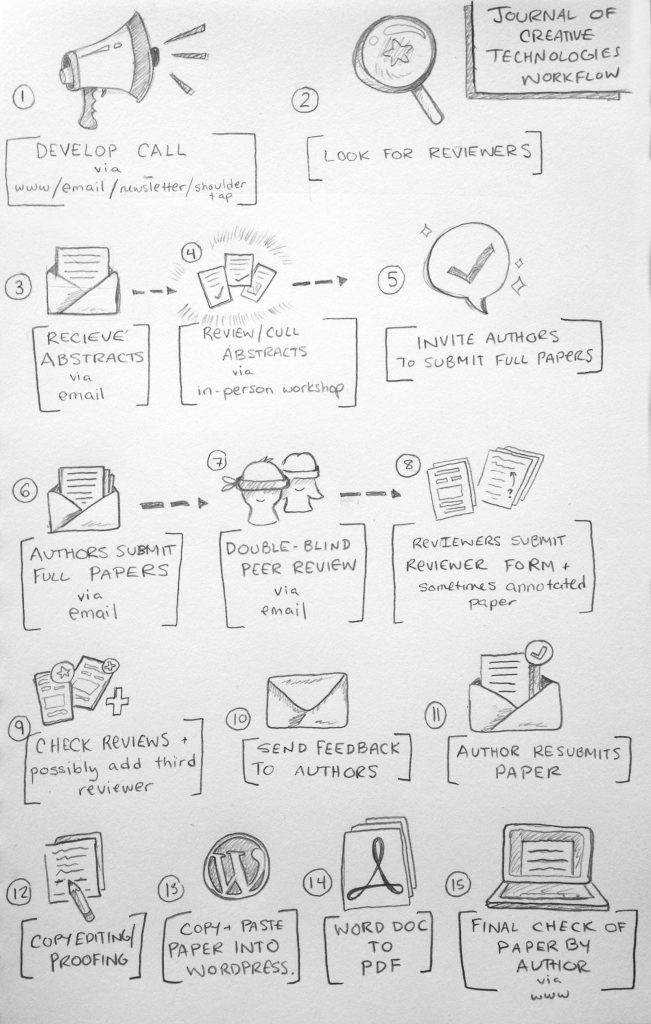 JOURNAL OF
CREATIVE
TECHNOLOGIES
WORKFLOW
1
DEVELOP CALL
via
www/email/newsletter/shoulder
tap
2
LOOK FOR REVIEWERS
3
RECIEVE
ABSTRACTS
via
email
4
REVIEW/CULL
ABSTRACTS
via
in-person workshop
5
INVITE AUTHORS
TO SUBMIT FULL PAPERS
6
AUTHORS SUBMIT
FULL PAPERS
via
email
7
DOUBLE-BLIND
PEER REVIEW
via
email
8
?
REVIEWERS SUBMIT
REVIEWER FORM +
sometimes annotated
paper
9
CHECK REVIEWS +
possibly add third
reviewer
10
SEND FEEDBACK
TO AUTHORS
11
AUTHOR RESUBMITS
PAPER
12
COPYEDITING/
PROOFING
13
W
COPY + PASTE
PAPER INTO
WORDPRESS.
14
WORD DOC
TO
PDF
15
FINAL CHECK OF
PAPER BY
AUTHOR
via
www